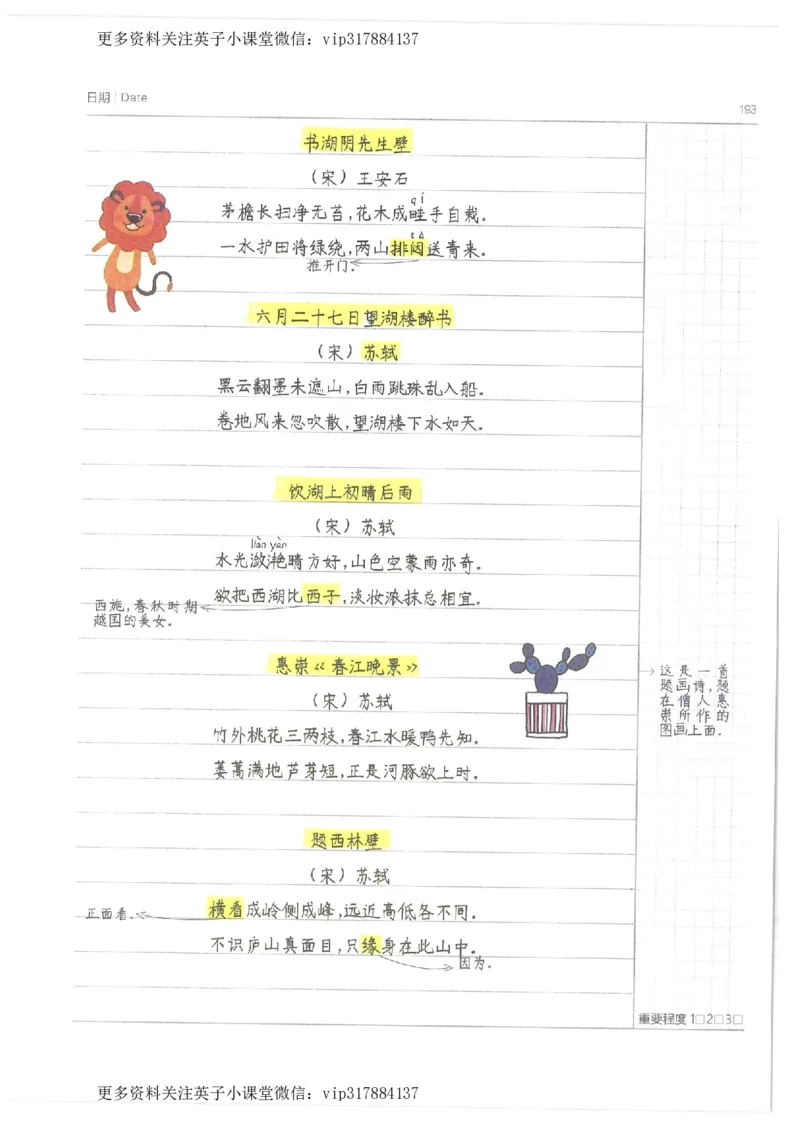 更多资料关注英子小课堂微信：vip317884137
日期 | Date
193
书湖阴先生壁
（宋）王安石
qí
茅檐长扫净无苔,花木成畦手自栽.
tà
一水护田将绿绕,两山排闼送青来.
推开门.
六月二十七日望湖楼醉书
（宋）苏轼
黑云翻墨未遮山,白雨跳珠乱入船.
卷地风来忽吹散,望湖楼下水如天.
饮湖上初晴后雨
（宋）苏轼
liàn yàn
水光潋滟晴方好,山色空蒙雨亦奇.
欲把西湖比西子,淡妆浓抹总相宜.
西施,春秋时期
越国的美女.
惠崇《春江晚景》
（宋）苏轼
竹外桃花三两枝,春江水暖鸭先知.
蒌蒿满地芦芽短,正是河豚欲上时.
这是一首
题画诗,题
在僧人惠
崇所作的
图画上面.
题西林壁
（宋）苏轼
横看成岭侧成峰,远近高低各不同.
正面看.
不识庐山真面目,只缘身在此山中.
因为.
重要程度 1□2□3□
更多资料关注英子小课堂微信：vip317884137